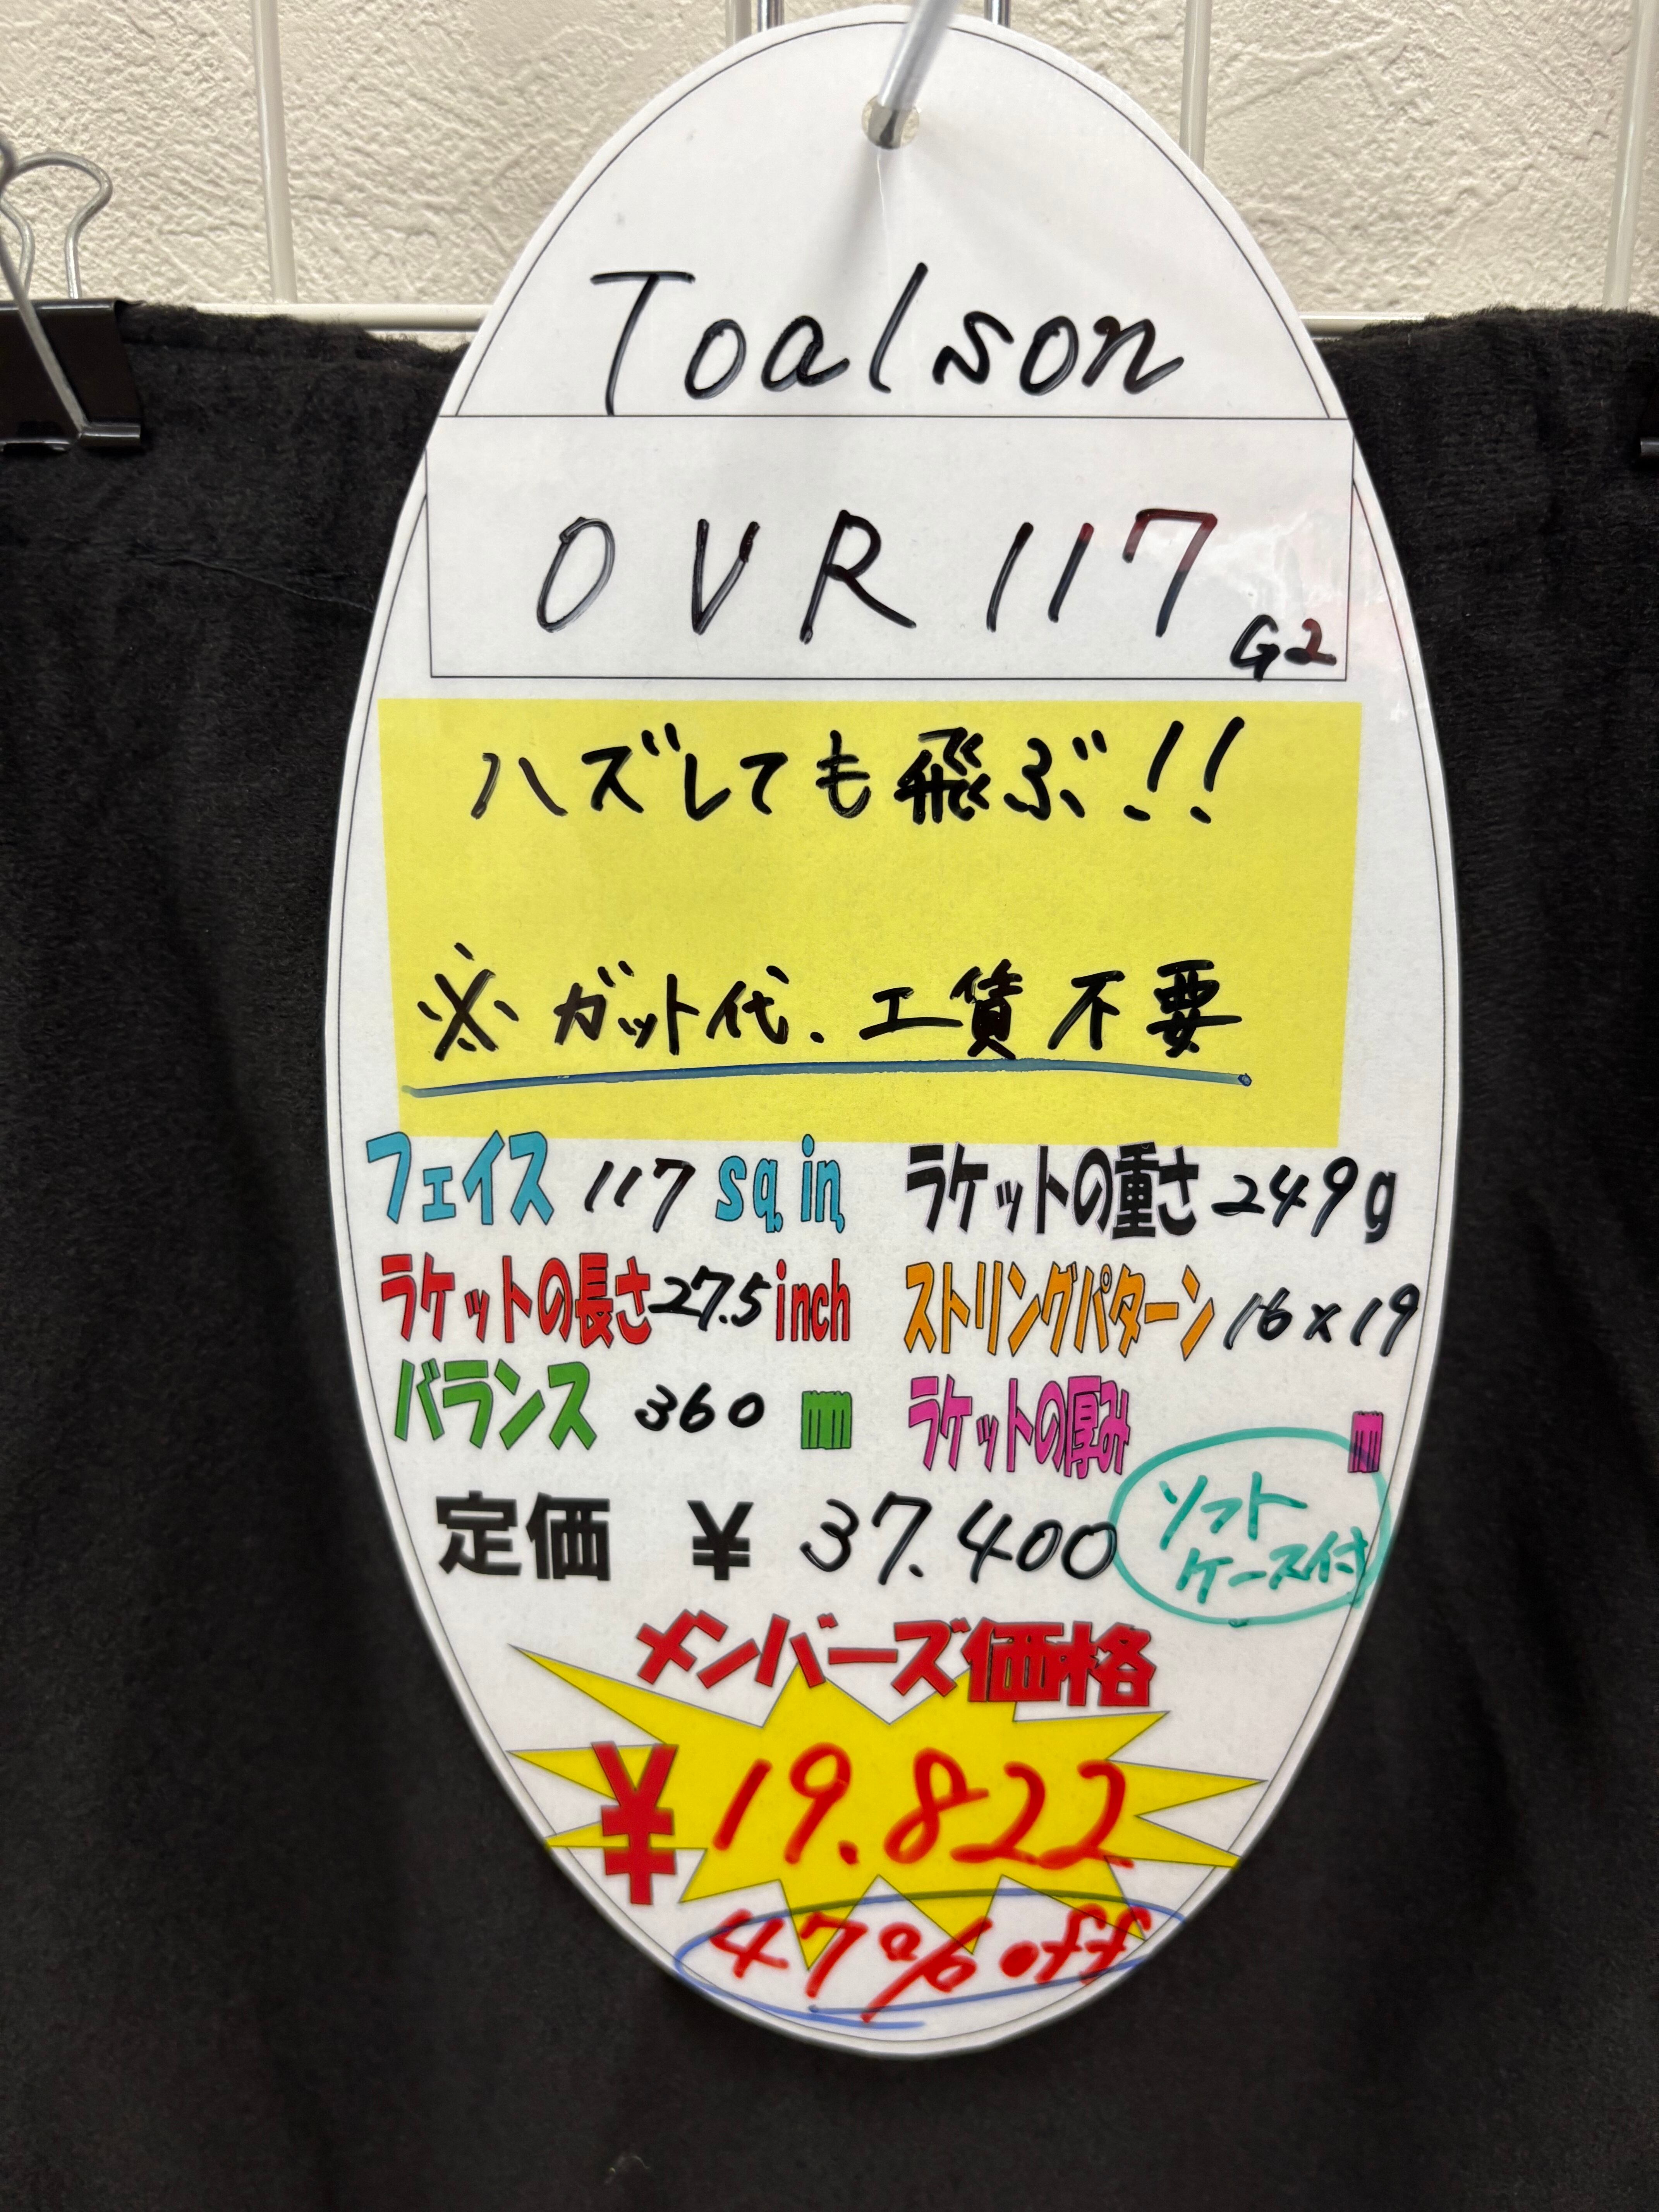 Toalson
OVR 117 G2
ハズしても飛ぶ!!
※ガット代.工賃不要
フェイス 117 sq.in. ラケットの重さ 249 g
ラケットの長さ 27.5 inch ストリングパターン 16×19
バランス 360 mm ラケットの厚み mm
定価 ¥ 37.400 ソフト
ケース付
メンバーズ価格
¥19.822
47%off